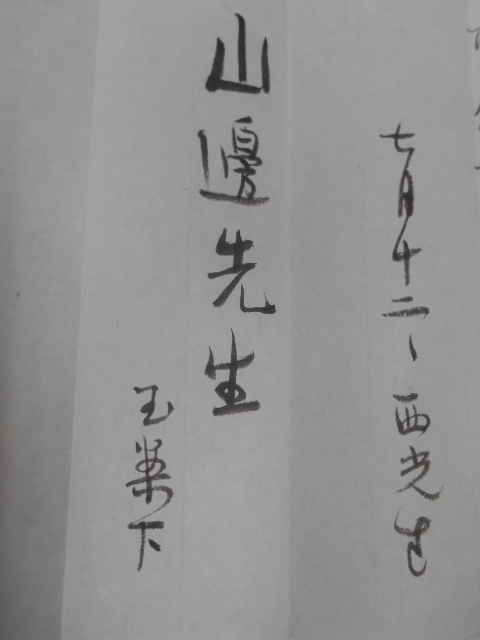 七月十二日 西光生
山邊先生
玉案下